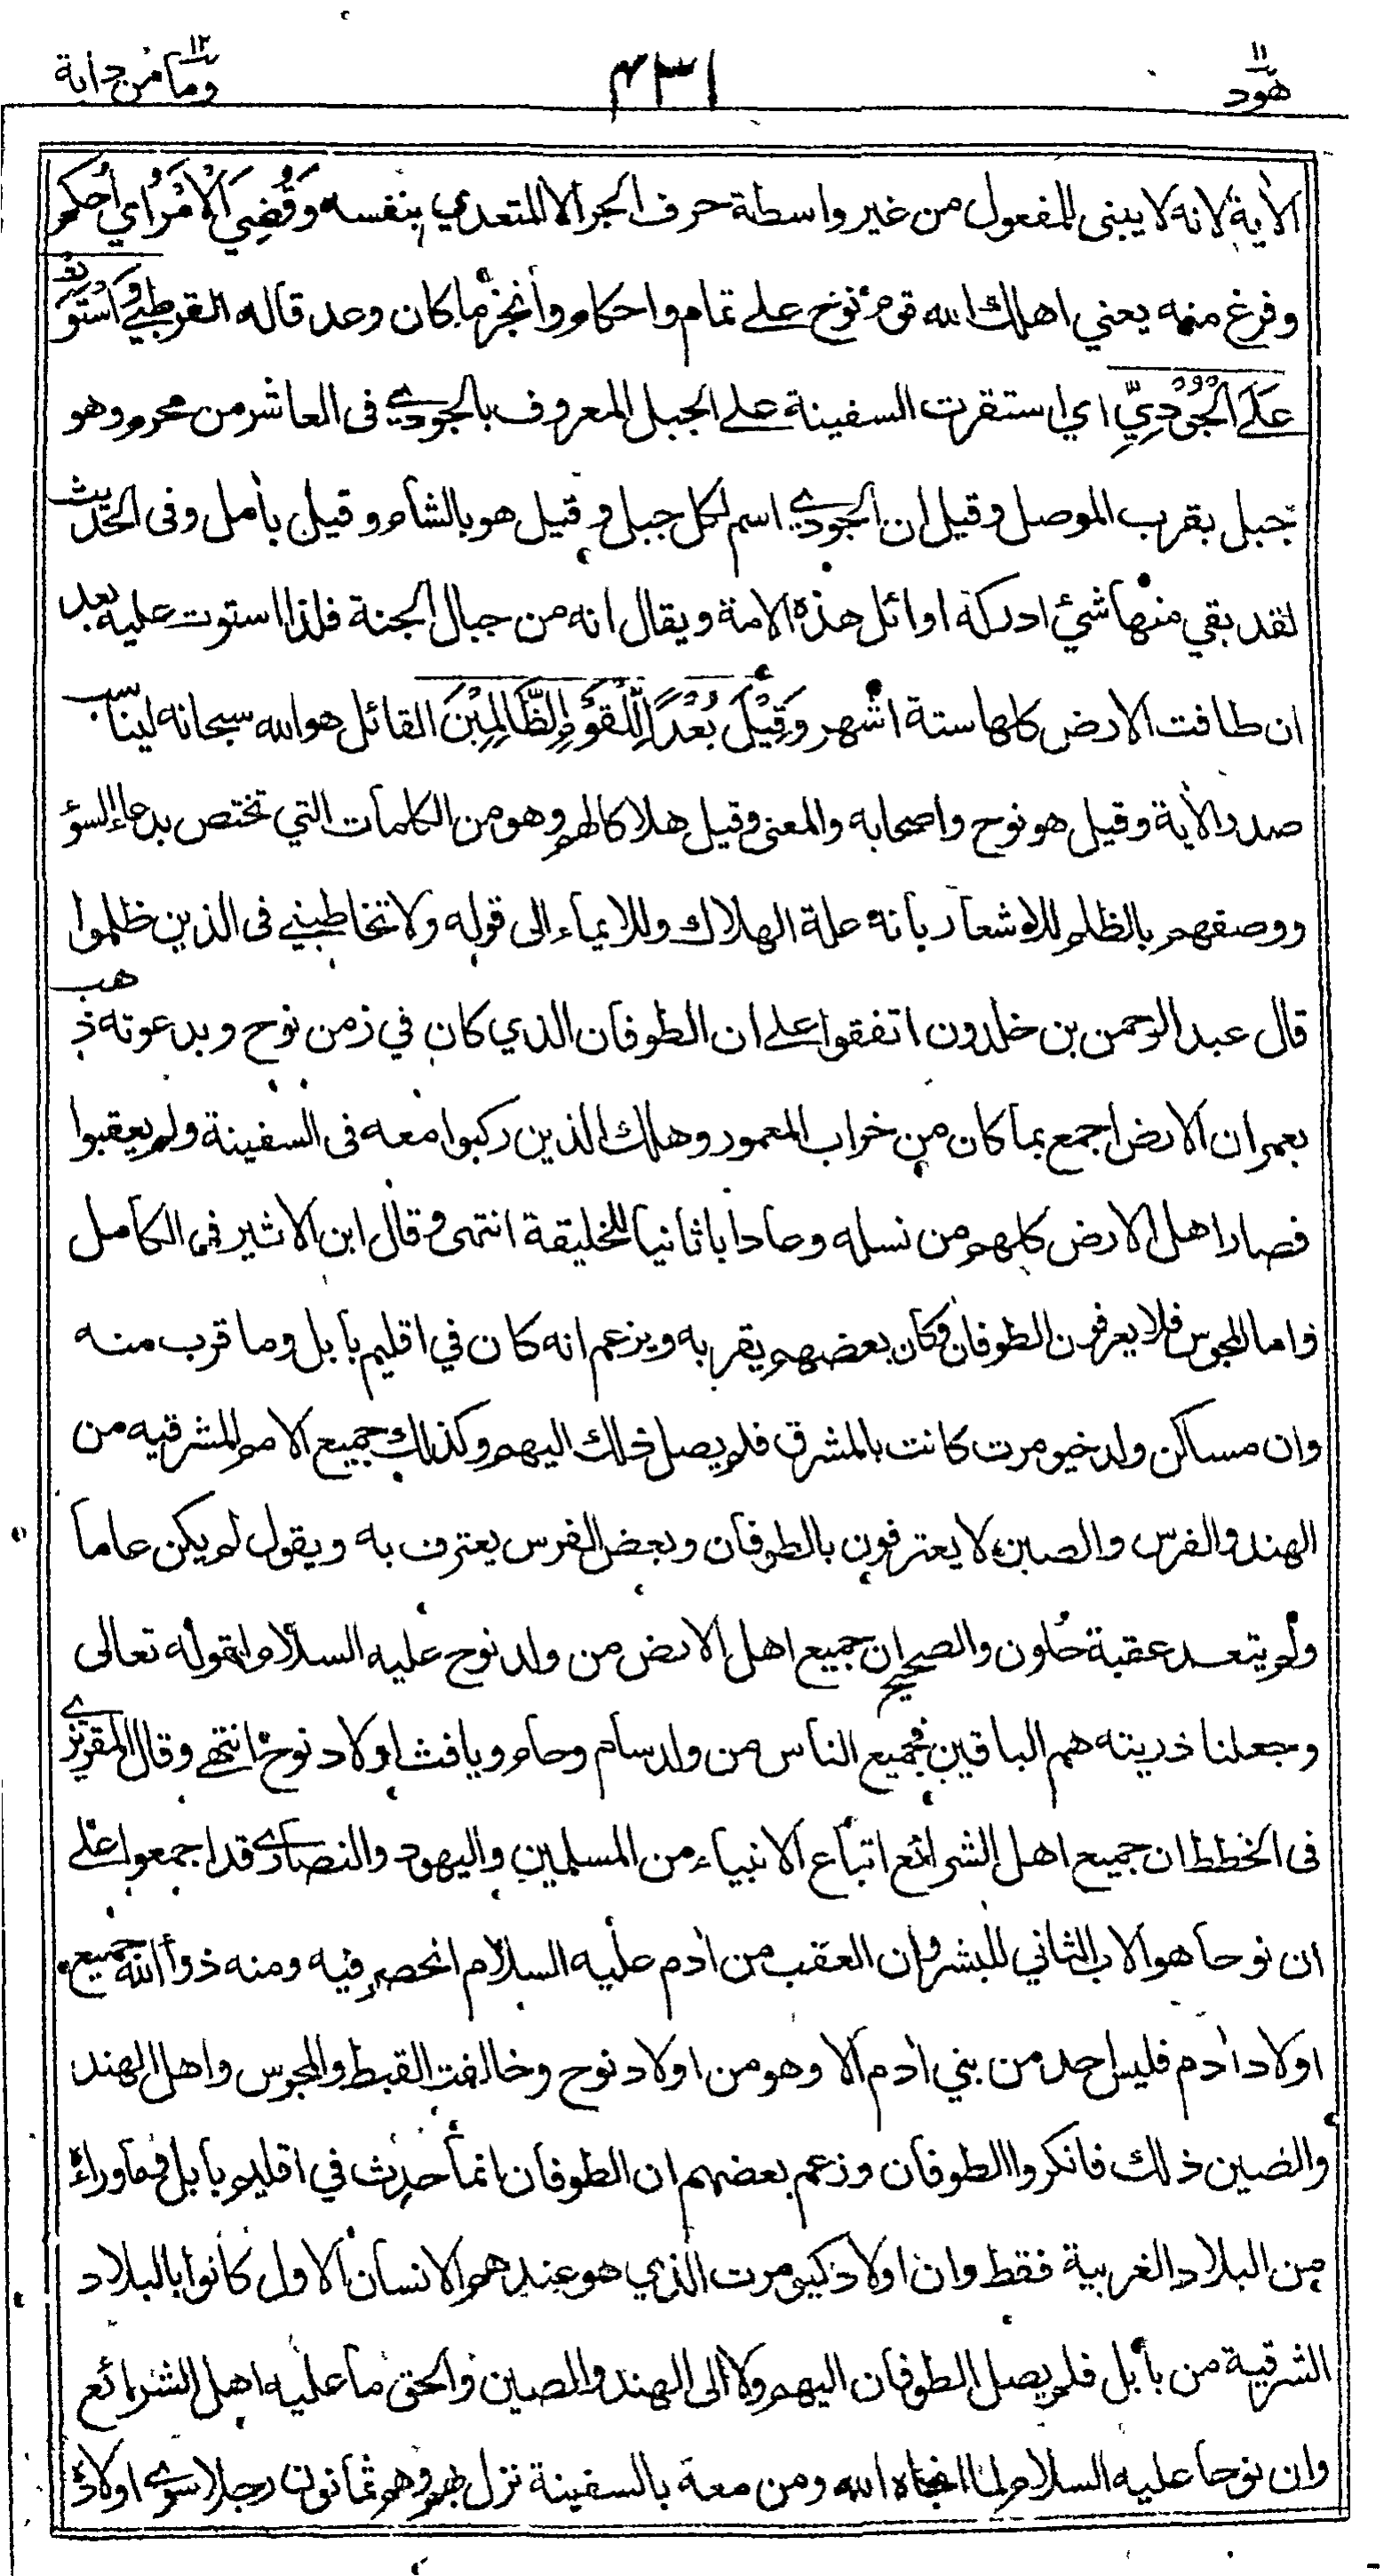 هود ١١
٤٣١
وما من دابة ١٢
الأية لانه لا يبنى للمفعول من غير واسطة حرف الجر الا المتعدي بنفسه وَقُضِيَ الْأَمْرُ اي أحكم
وفرغ منه يعني اهلك الله قوم نوح على تمام واحكام وأنجز ما كان وعد قاله القرطبي وَاسْتَوَتْ
عَلَى الْجُوْدِيِّ اي استقرت السفينة على الجبل المعروف بالجودي فى العاشر من محرم وهو
جبل بقرب الموصل وقيل ان الجودي اسم لكل جبل وقيل هو بالشام وقيل بأمل وفى الحديث
لقد بقي منها شئ ادركه اوائل هذه الامة ويقال انه من جبال الجنة فلذا استوت عليه بعد
ان طافت الارض كلها ستة اشهر وَقِيْلَ بُعْدًا لِّلْقَوْمِ الظَّالِمِيْنَ القائل هو الله سبحانه ليناسب
صدر الأية وقيل هو نوح واصحابه والمعنى وقيل هلاكا لهم وهو من الكلمات التي تختص بدعاء السوء
ووصفهم بالظلم للاشعار بانه علة الهلاك وللايماء الى قوله ولا تخاطبني فى الذين ظلموا
قال عبد الرحمن بن خلدون اتفقوا على ان الطوفان الذي كان في زمن نوح وبدعوته ذهب
بعمران الارض اجمع بما كان من خراب المعمور وهلك الذين ركبوا معه فى السفينة ولم يعقبوا
فصار اهل الارض كلهم من نسله وعاد ابا ثانيا للخليقة انتهى وقال ابن الاثير فى الكامل
واما المجوس فلا يعرفون الطوفان وكان بعضهم يقر به ويزعم انه كان في اقليم بابل وما قرب منه
وان مساكن ولد خيومرت كانت بالمشرق فلم يصل ذلك اليهم وكذلك جميع الامم المشرقيه من
الهند والفرس والصين لا يعترفون بالطوفان وبعض الفرس يعترف به ويقول لم يكن عاما
ولم يتعد عقبة حلون والصحيح ان جميع اهل الارض من ولد نوح عليه السلام لقوله تعالى
وجعلنا ذريته هم الباقين فجميع الناس من ولد سام وحام ويافث اولاد نوح انتهى وقال المقريزي
فى الخطط ان جميع اهل الشرائع اتباع الانبياء من المسلمين واليهود والنصارى قد اجمعوا على
ان نوحا هو الاب الثاني للبشر وان العقب من ادم عليه السلام انحصر فيه ومنه ذرأ الله جميع
اولاد ادم فليس احد من بني ادم الا وهو من اولاد نوح وخالفت القبط والمجوس واهل الهند
والصين ذلك فانكروا الطوفان وزعم بعضهم ان الطوفان انما حدث في اقليم بابل وما وراءه
من البلاد الغربية فقط وان اولاد كيومرت الذي هو عندهم الانسان الاول كانوا بالبلاد
الشرقية من بابل فلم يصل الطوفان اليهم ولا الى الهند والصين والحق ما عليه اهل الشرائع
وان نوحا عليه السلام لما انجاه الله ومن معه بالسفينة نزل بهم وهم ثمانون رجلا سوى اولاده